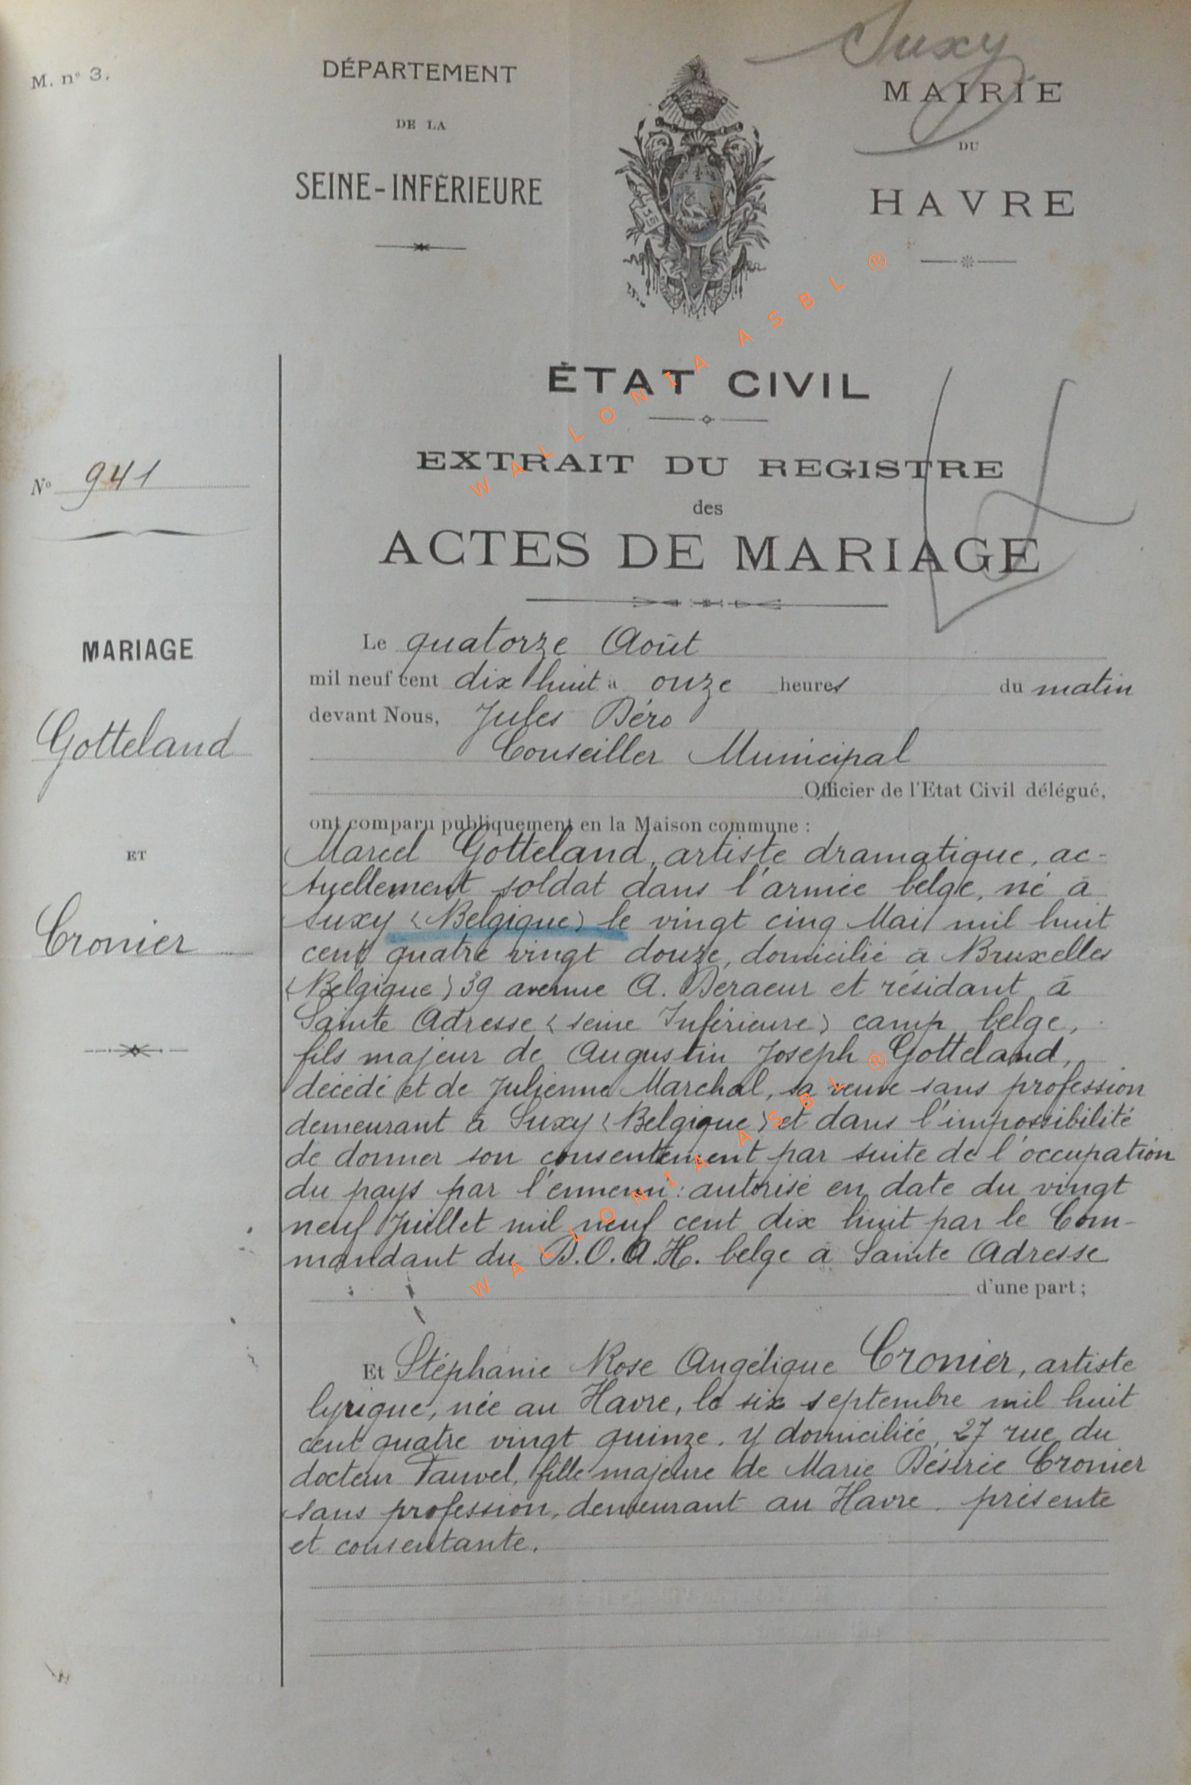 Suxy
M. n° 3.
DÉPARTEMENT
DE LA
SEINE-INFÉRIEURE
MAIRIE
DU
HAVRE
ÉTAT CIVIL
EXTRAIT DU REGISTRE
des
ACTES DE MARIAGE
N° 941
MARIAGE
Gotteland
ET
Cronier
Le quatorze Août
mil neuf cent dix huit à onze heures du matin
devant Nous, Jules Déro
Conseiller Municipal
Officier de l'Etat Civil délégué,
ont comparu publiquement en la Maison commune :
Marcel Gotteland, artiste dramatique, ac-
tuellement soldat dans l'armée belge, né à
Suxy (Belgique) le vingt cinq Mai mil huit
cent quatre vingt douze, domicilié à Bruxelles
(Belgique) 39 avenue A. et résidant à
Sainte Adresse (Seine Inférieure) camp belge,
fils majeur de Augustin Joseph Gotteland,
décédé et de Julienne Marchal, sa veuve sans profession
demeurant à Suxy (Belgique) et dans l'impossibilité
de donner son consentement par suite de l'occupation
du pays par l'ennemi : autorisé en date du vingt
neuf Juillet mil neuf cent dix huit par le Com-
mandant du D.O.A.H. belge à Sainte Adresse
d'une part ;
Et Stéphanie Rose Angélique Cronier, artiste
lyrique, née au Havre, le six septembre mil huit
cent quatre vingt quinze, y domiciliée, 27 rue du
docteur Fauvel, fille majeure de Marie Désirée Cronier
sans profession, demeurant au Havre. présente
et consentante.
WALLONIA ASBL ®
WALLONIA ASBL ®